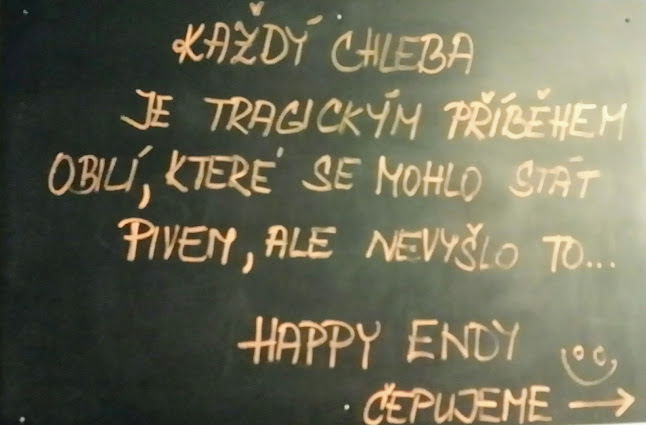 KAŽDÝ CHLEBA
JE TRAGICKÝM PŘÍBĚHEM
OBILÍ, KTERÉ SE MOHLO STÁT
PIVEM, ALE NEVYŠLO TO...
HAPPY ENDY
ČEPUJEME →